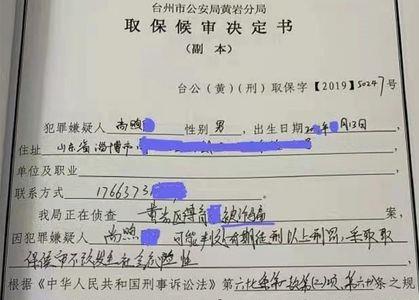 台州市公安局黄岩分局
取保候审决定书
(副本)
台公(黄)(刑)取保字【2019】50247号
犯罪嫌疑人 尚煦 性别 男 出生日期 月13日
住址 山东省淄博市
单位及职业
联系方式 1766373
我局正在侦查 黄岩区 被诈骗 案
因犯罪嫌疑人 尚煦 可能判处有期徒刑以上刑罚,采取取
保候审不致发生社会危险性
根据《中华人民共和国刑事诉讼法》第六十七条第一款第(二)项、第六十 条之规